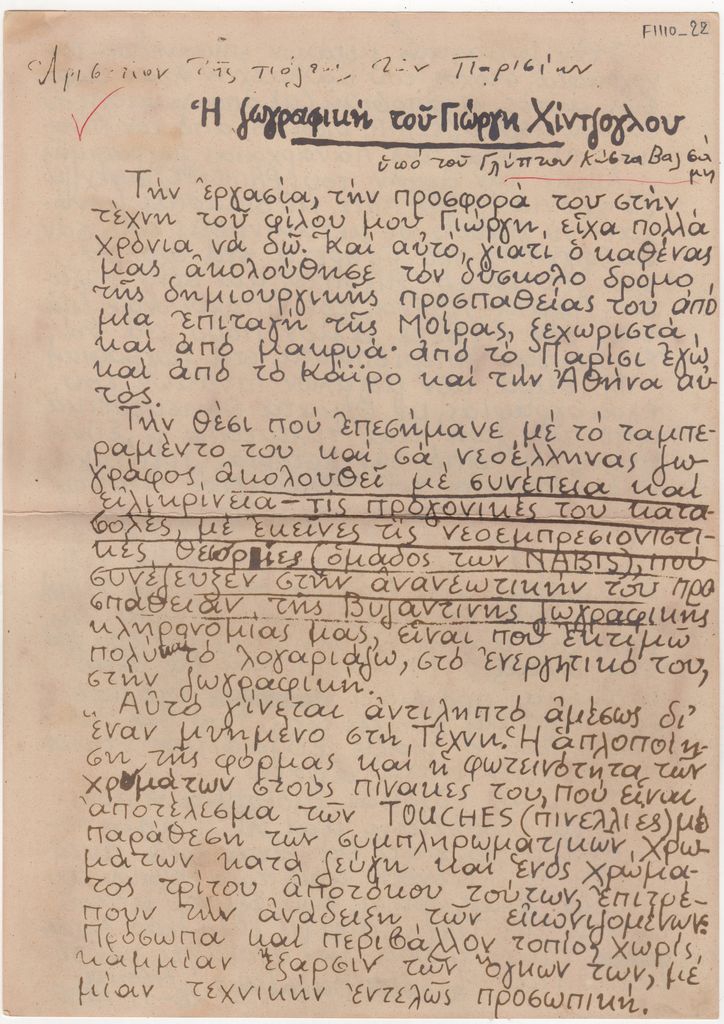 F1110_22
Ἀριστεῖον τῆς πόλεως τῶν Παρισίων
Ἡ ζωγραφική τοῦ Γιώργη Χίντζογλου
ὑπό τοῦ Γλύπτου Κώστα Βαλσά-
μη
Τήν ἐργασία, τήν προσφορά του στήν
τέχνη τοῦ φίλου μου Γιώργη, εἶχα πολλά
χρόνια νά δῶ. Καί αὐτό, γιατί ὁ καθένας
μας ἀκολούθησε τόν δύσκολο δρόμο
τῆς δημιουργικῆς προσπαθείας του ἀπό
μία ἐπιταγή τῆς Μοίρας, ξεχωριστά
καί ἀπό μακρυά· ἀπό τό Παρίσι ἐγώ
καί ἀπό τό Κάϊρο καί τήν Ἀθήνα αὐ-
τός.
Τήν θέσι πού ἐπεσήμανε μέ τό ταμπε-
ραμέντο του καί σά νεοέλληνας ζω-
γράφος, ἀκολουθεῖ μέ συνέπεια καί
εἰλικρίνεια - τίς προγονικές του κατα-
βολές, μέ ἐκεῖνες τίς νεοεμπρεσιονιστι-
κές θεωρίες (ὁμάδος τῶν NABIS), πού
συνέζευξεν στήν ἀνανεωτικήν του προ-
σπάθειαν, τῆς Βυζαντινῆς ζωγραφικῆς
κληρονομίας μας, εἶναι πού ἐκτιμῶ
πολύ καί τό λογαριάζω, στό ἐνεργητικό του,
στήν ζωγραφική.
Αὐτό γίνεται ἀντιληπτό ἀμέσως δι'
ἕναν μυημένο στή Τέχνη. Ἡ ἁπλοποίη-
ση τῆς φόρμας καί ἡ φωτεινότητα τῶν
χρωμάτων στούς πίνακες του, πού εἶναι
ἀποτέλεσμα τῶν TOUCHES (πινελλιές) μέ
παράθεση τῶν συμπληρωματικῶν χρω-
μάτων κατά ζεύγη καί ἑνός χρώμα-
τος τρίτου ἀποτόκου τούτων, ἐπιτρέ-
πουν τήν ἀνάδειξη τῶν εἰκονιζομένων.
Πρόσωπα καί περιβάλλον τοπίο, χωρίς
καμμίαν ἔξαρσιν τῶν ὄγκων των, μέ
μίαν τεχνικήν ἐντελῶς προσωπική.